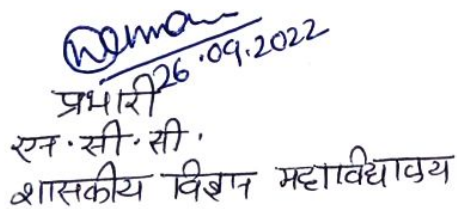 26.09.2022
प्रभारी
एन.सी.सी.
शासकीय विज्ञान महाविद्यालय